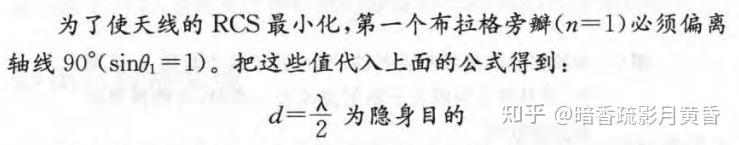 为了使天线的 RCS 最小化,第一个布拉格旁瓣(n=1)必须偏离
轴线 90°(sinθ₁=1)。把这些值代入上面的公式得到:
d=λ/2 为隐身目的
知乎 @暗香疏影月黄昏